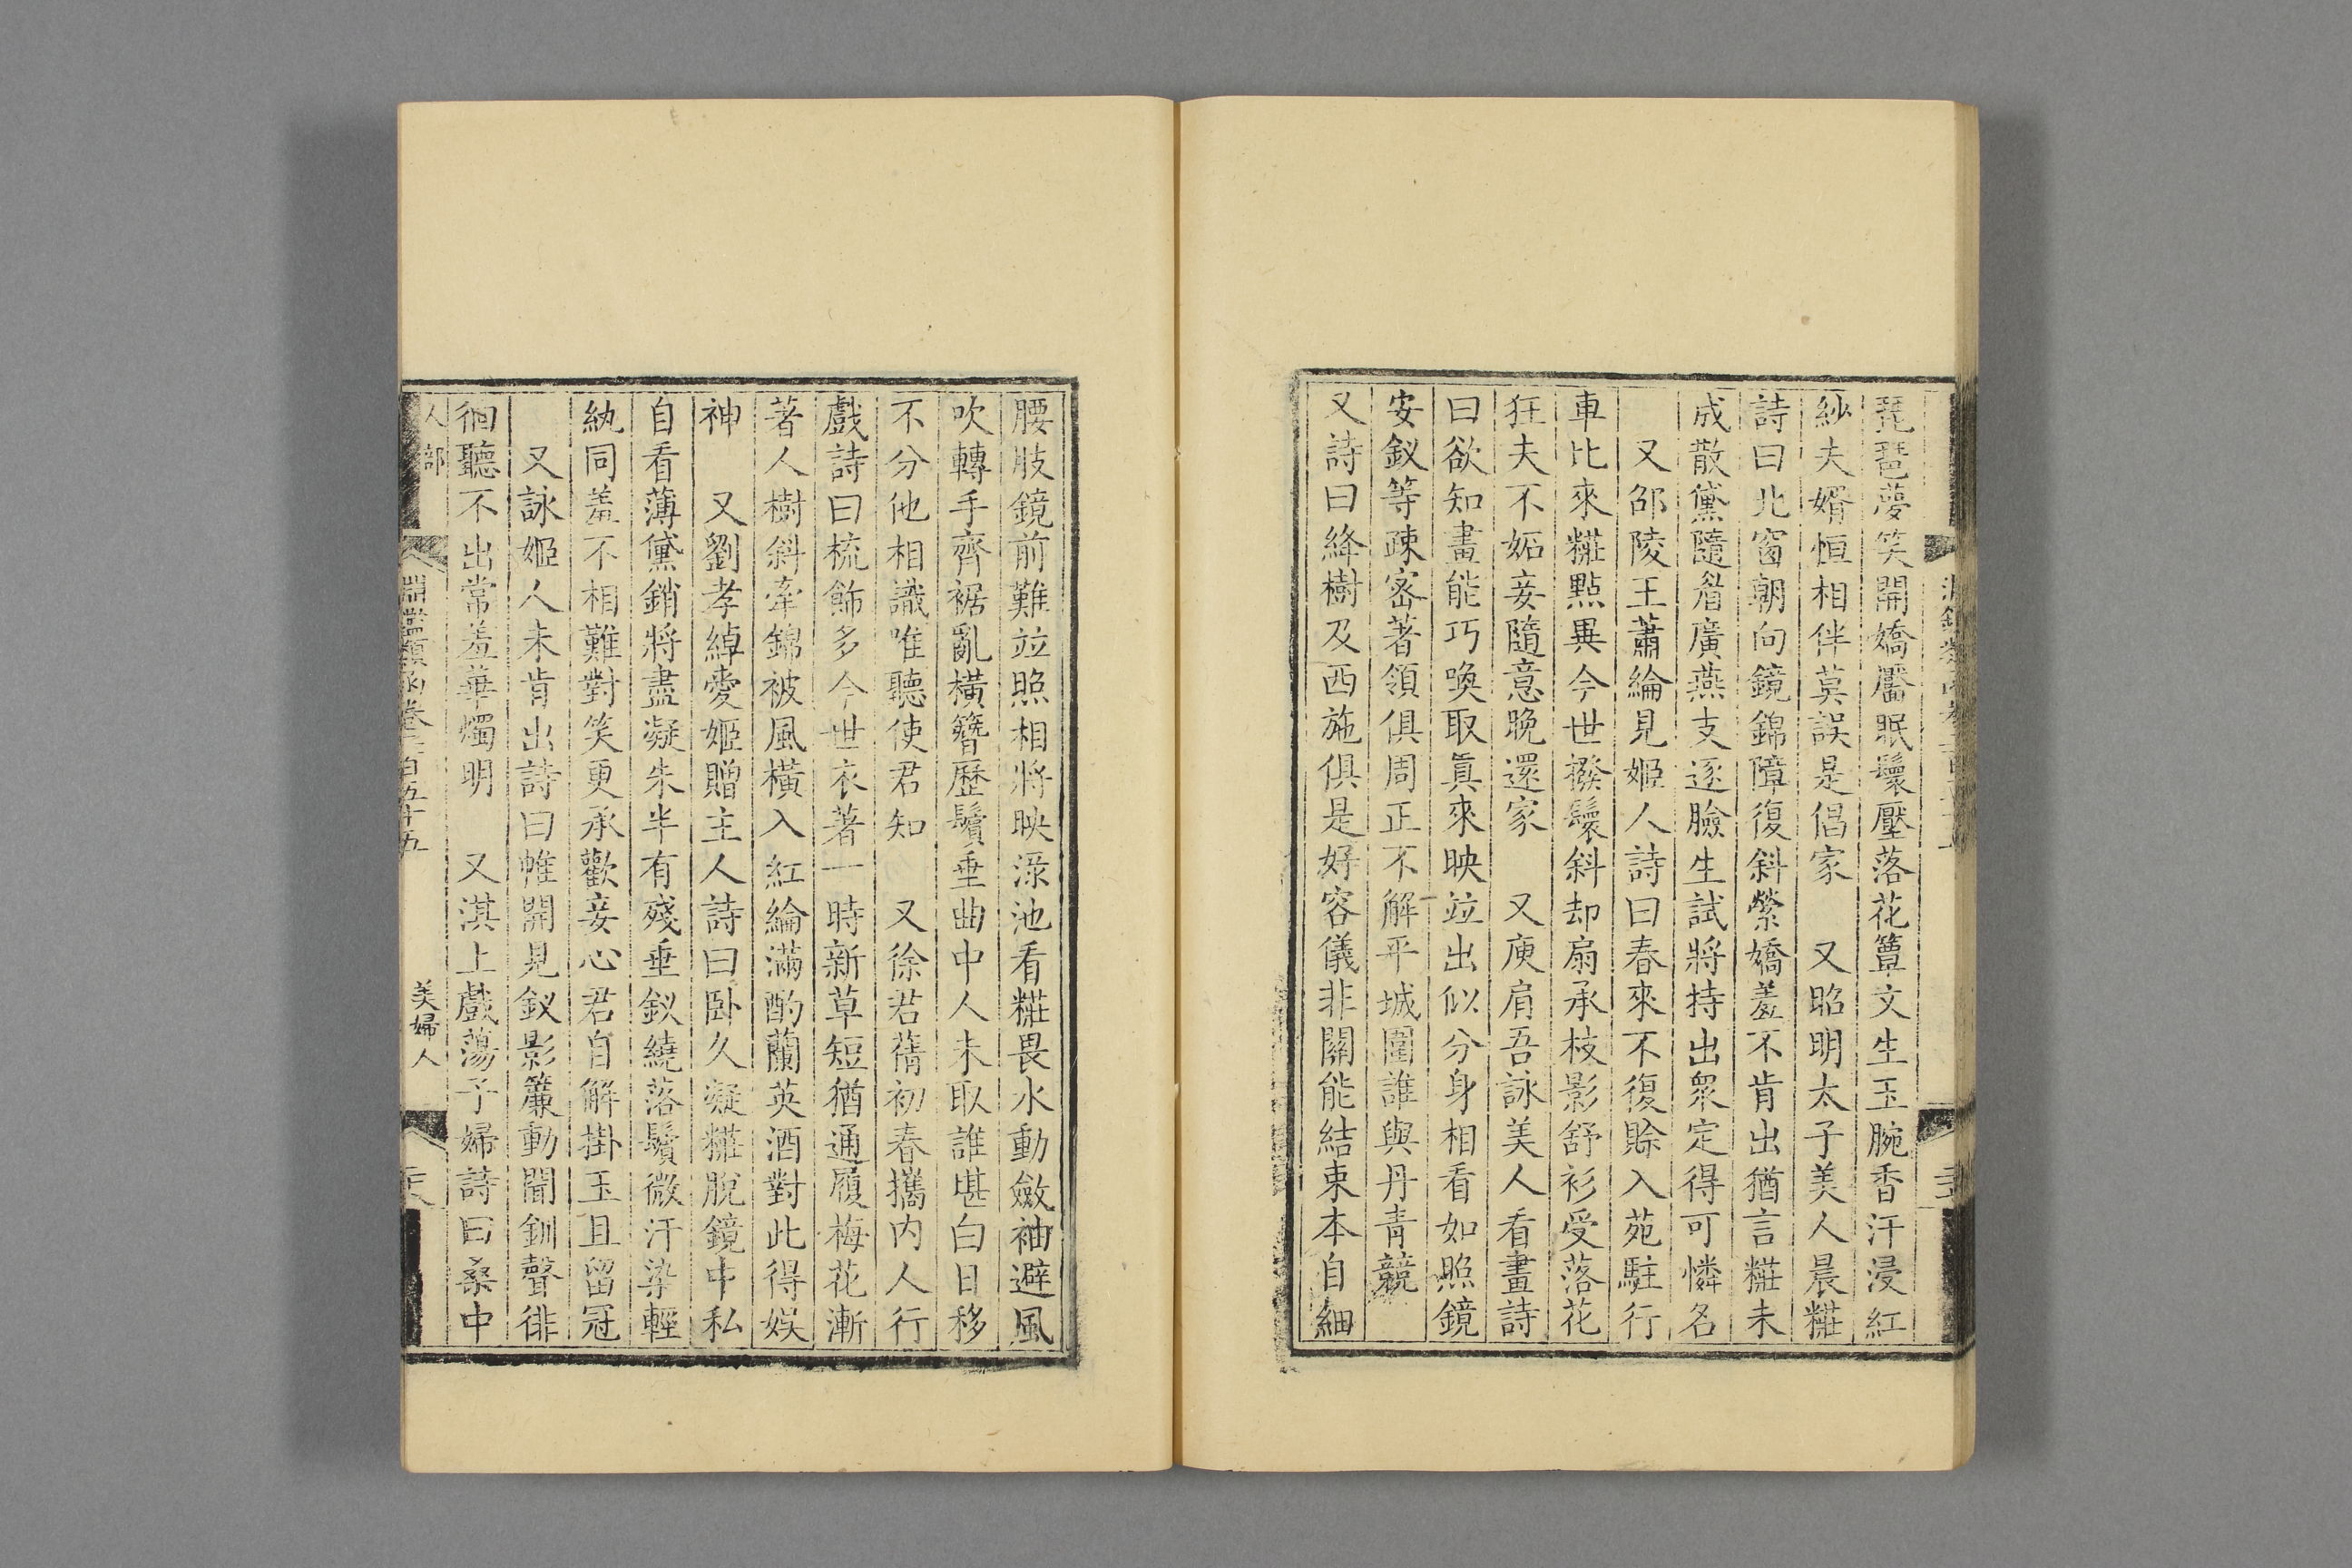 琵琶夢笑開嬌靨眠鬟壓落花簟文生玉腕香汗浸紅
紗夫婿恒相伴莫誤是倡家　又昭明太子美人晨糚
詩曰北窗朝向鏡錦障復斜縈嬌羞不肯出猶言糚未
成散黛隨眉廣燕支逐臉生試將持出衆定得可憐名
又邵陵王蕭綸見姬人詩曰春來不復賒入苑駐行
車比來糚點異今世撥鬟斜却扇承枝影舒衫受落花
狂夫不妬妾隨意晚還家　又庾肩吾詠美人看畫詩
曰欲知畫能巧喚取眞來映竝出似分身相看如照鏡
安釵等疎密著領俱周正不解平城圍誰與丹青競
又詩曰絳樹及西施俱是好容儀非關能結束本自細
腰肢鏡前難竝照相將映渌池看糚畏水動斂袖避風
吹轉手齊裾亂橫簪歷鬢垂曲中人未取誰堪白日移
不分他相識唯聽使君知　又徐君蒨初春攜内人行
戲詩曰梳飾多今世衣著一時新草短猶通履梅花漸
著人樹斜牽錦帔風橫入紅綸滿酌蘭英酒對此得娛
神　又劉孝綽愛姬贈主人詩曰卧久凝糚脫鏡中私
自看薄黛銷將盡凝朱半有殘垂釵繞落鬢微汗染輕
紈同羞不相難對笑更承歡妾心君自解掛玉且留冠
又詠姬人未肯出詩曰帷開見釵影簾動聞釧聲徘
徊聽不出常羞華燭明　又淇上戲蕩子婦詩曰桑中
人部
淵鑑類函卷二百五十五
美婦人